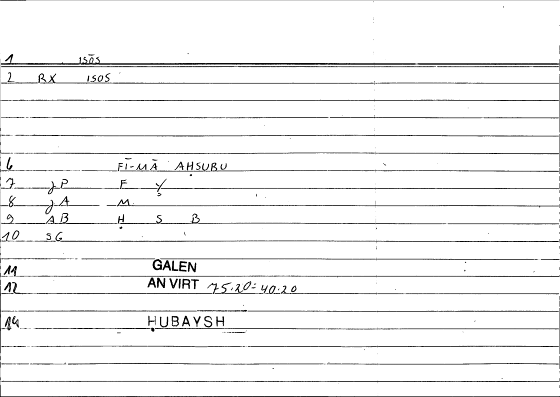 1 isōs
2 BX isos
6 FĪ-MĀ AḤSUBU
7 JP F Y
8 JA M
9 AB Ḥ S B
10 SG
11 GALEN
12 AN VIRT 75.20 = 40.20
14 ḤUBAYSH